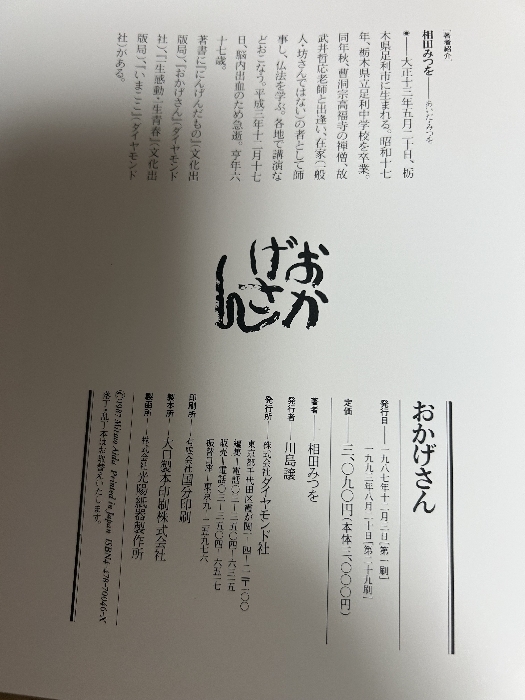 著者紹介
相田みつを──あいだ・みつを
◉──大正十三年五月二十日、栃
木県足利市に生まれる。昭和十七
年、栃木県立足利中学校を卒業。
同年秋、曹洞宗高福寺の禅僧、故
武井哲応老師と出逢い、在家(一般
人・坊さんではない)の者として師
事し、仏法を学ぶ。各地で講演な
どおこなう。平成三年十二月十七
日、脳内出血のため急逝。享年六
十七歳。
著書に『にんげんだもの』(文化出
版局)、『おかげさん』(ダイヤモンド
社)、『一生感動・一生青春』(文化出
版局)、『いまここ』(ダイヤモンド
社)がある。
おか
げさ
ん
おかげさん
発行日──一九八七年十二月三日[第一刷]
一九九二年八月二十日[第三十九刷]
定価──三、〇九〇円(本体三、〇〇〇円)
著者──相田みつを
発行者──川島譲
発行所──株式会社ダイヤモンド社
東京都千代田区霞が関一−四−二〒一〇〇
編集−電話〇三−三五〇四−六三二五
販売−電話〇三−三五〇四−六五一七
振替口座−東京九−二五九七六
印刷所──有限会社国分印刷
製本所──大口製本印刷株式会社
製函所──株式会社光陽紙器製作所
©1987 Mitsuo Aida Printed in Japan ISBN4-478-70046-X
落丁・乱丁本はお取替えいたします。